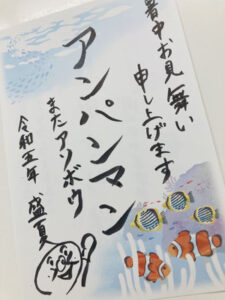 暑中お見舞い
申し上げます
アンパンマン
またアソボウ
令和五年 盛夏